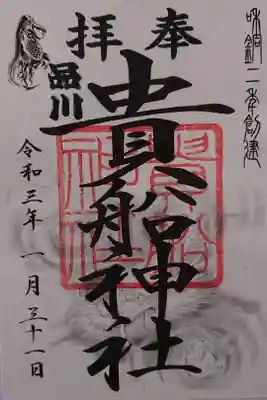 和銅二年創建
奉拝
品川
貴船神社
令和三年一月三十一日